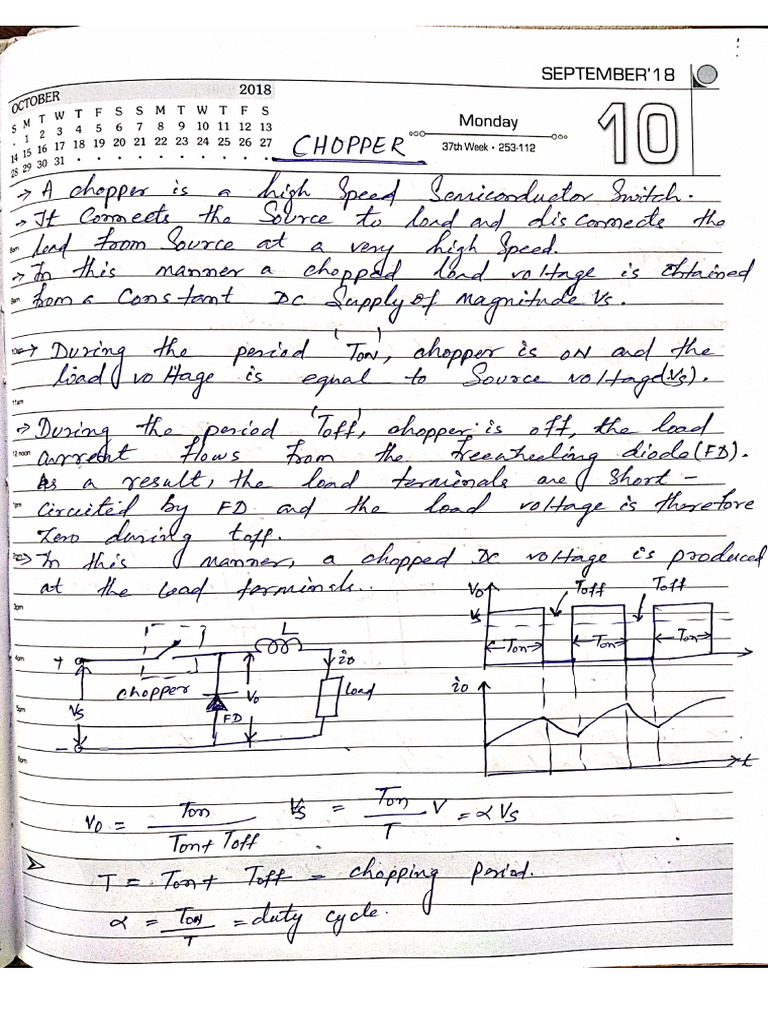 SEPTEMBER'18
OCTOBER 2018
S M T W T F S S M T W T F S
· 1 2 3 4 5 6 7 8 9 10 11 12 13
14 15 16 17 18 19 20 21 22 23 24 25 26 27
28 29 30 31
Monday
37th Week • 253-112
10
CHOPPER
→ A chopper is a high Speed Semiconductor Switch.
→ It Connects the Source to load and disconnects the
8am load from Source at a very high Speed.
→ In this manner a chopped load voltage is obtained
9am from a Constant DC Supply of magnitude Vs.
10am → During the period 'TON', chopper is ON and the
load voltage is equal to Source voltage(Vs).
11am
→ During the period 'Toff', chopper is off, the load
12 noon current flows from the freewheeling diode(FD).
As a result, the load terminals are Short-
1pm circuited by FD and the load voltage is therefore
Zero during toff.
2pm → In this manner, a chopped DC voltage is produced
at the load terminals..
3pm
Vo Toff Toff
Vs
Ton Ton Ton
L
4pm + io
chopper Vs FD Vo Load
5pm
-
6pm
io
t
Vo = Ton / Ton+Toff Vs = Ton / T V = αVs
T = Ton+ Toff = chopping Period.
α = Ton / T = duty cycle.